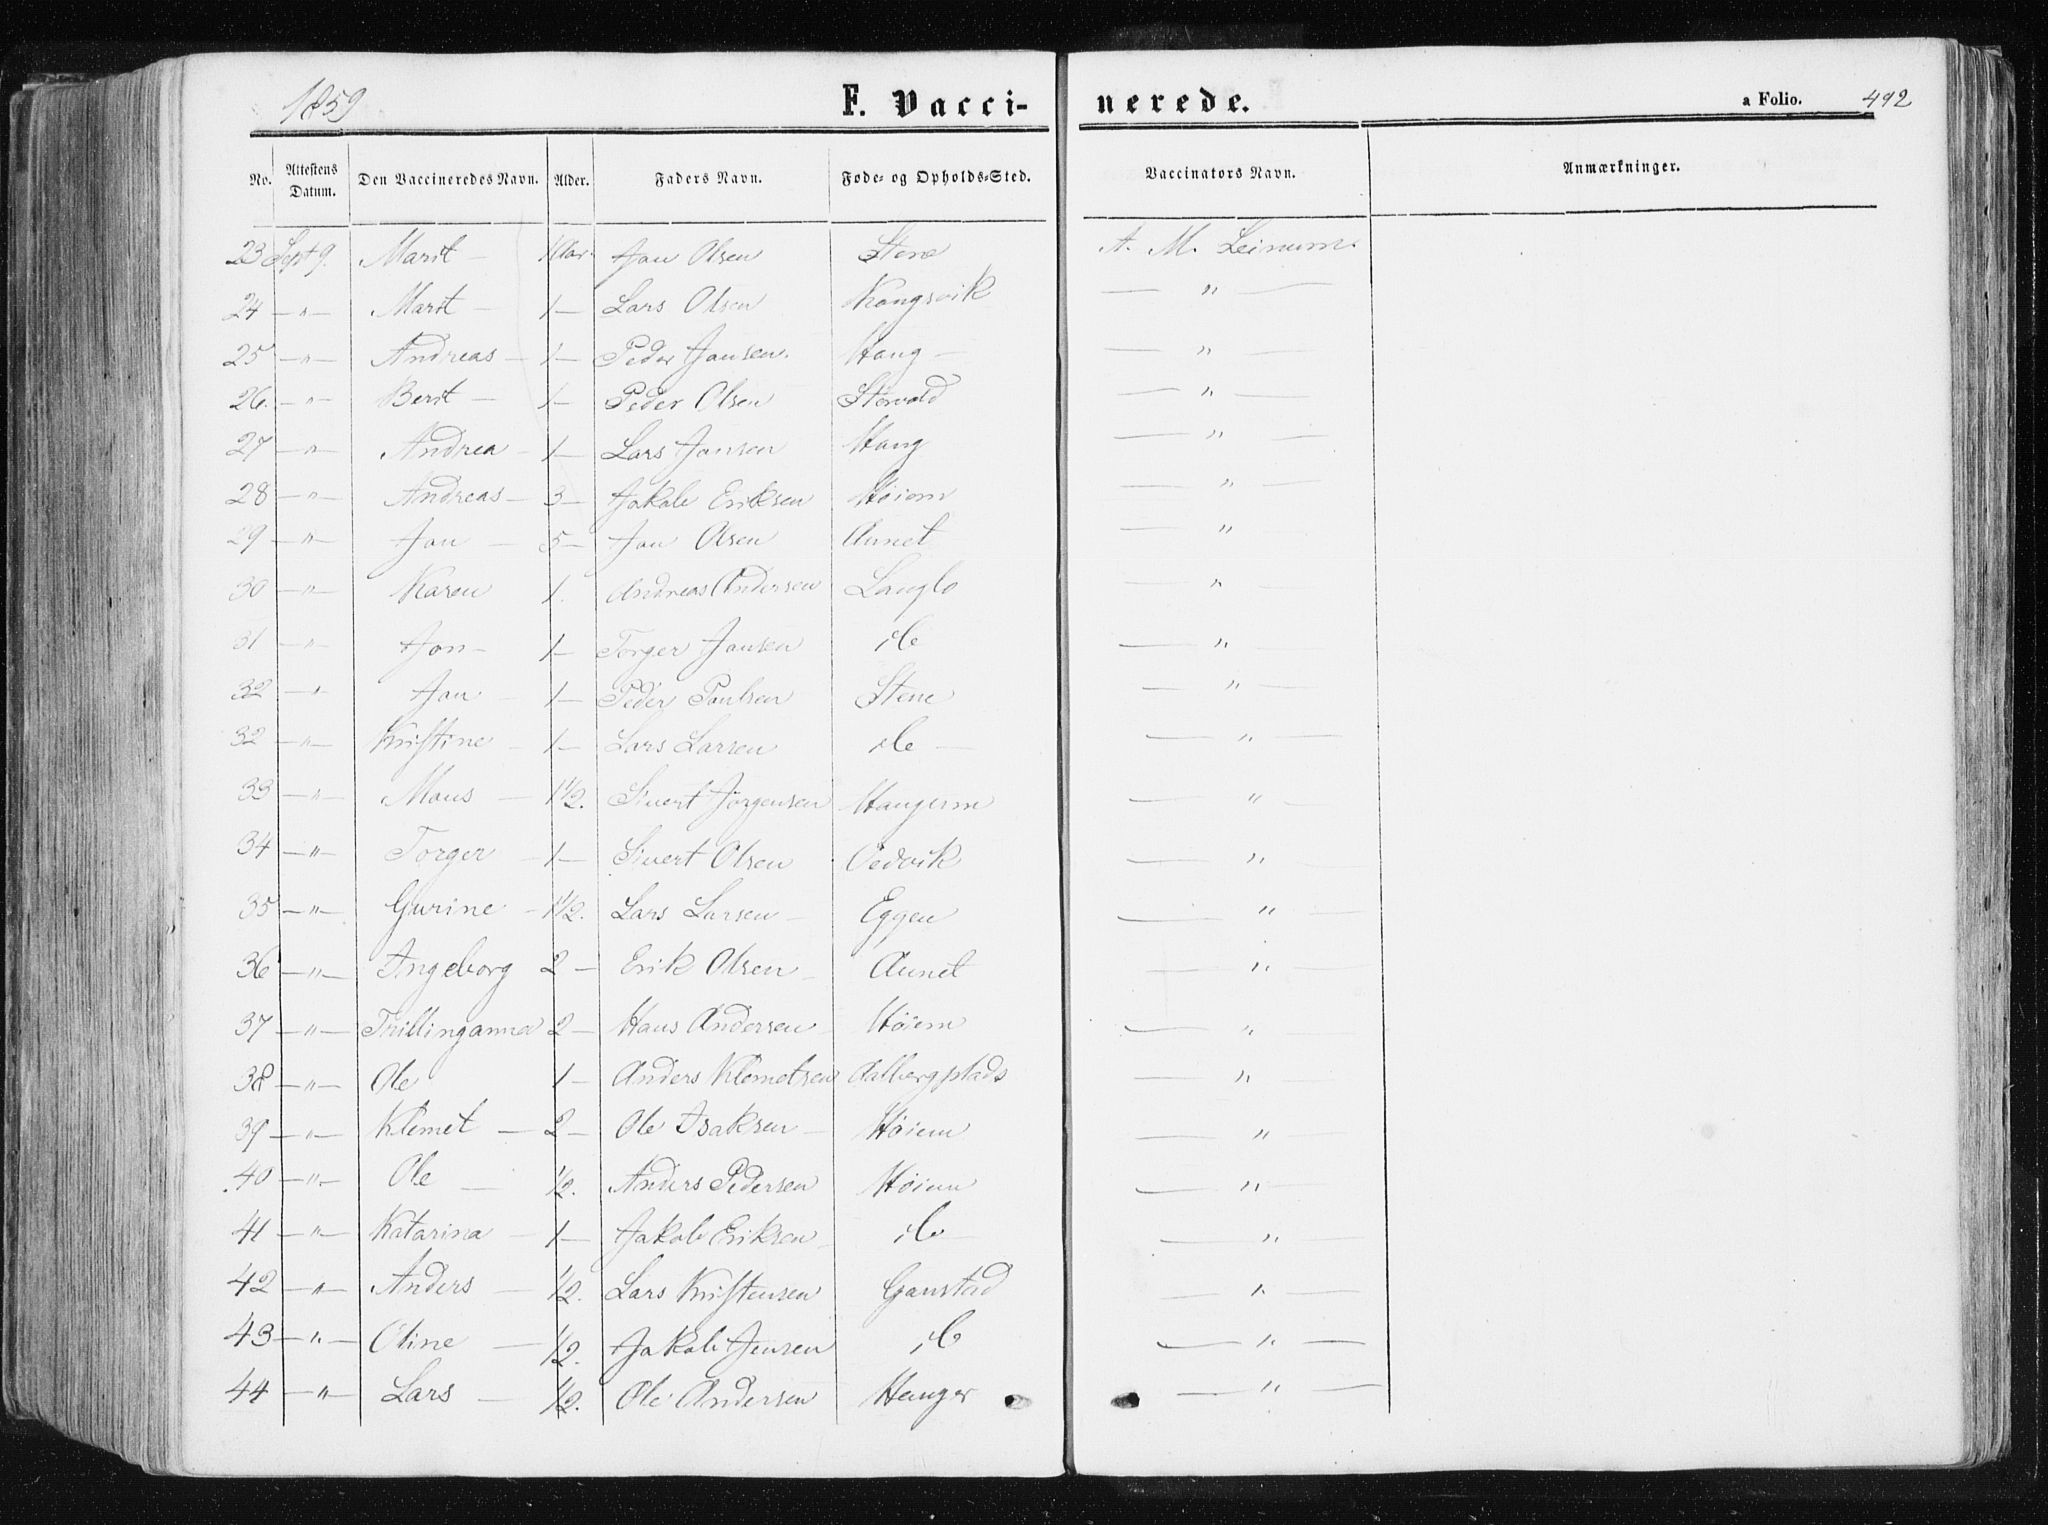 1859 F. Vacci- nerede. a Folio. 492
No. Attestens Datum. Den Vaccineredes Navn. Alder. Faders Navn. Føde- og Opholds-Sted. Vaccinators Navn. Anmærkninger.
23 Sept 9. Marit — 1 Aar. Jon Olsen Stene A. M. Leinum.
24 — " — Marit — 1 — Lars Olsen Kongsvik — " —
25 — " — Andreas — 1 — Peder Jonsen. Haug — — " —
26. — " Berit — 1 — Peder Olsen — " —
27 — " — Andrea — 1 — Lars Jonsen Haug — " —
28 — " — Andreas — 3 — Jakob Eriksen Høiem — " —
29 — " — Jon — 5 — Jon Olsen Aunet — " —
30 — " — Karen 1. Andreas Andersen Langlo — " —
31 — " — Jon — 1 — Torger Jonsen ib — " —
32 — " Jon — 1 — Peder Paulsen Stene — " —
32 — " — Kristine — 1 — Lars Larsen ib — — " —
33 — " — Mons — 1 1/2. Sivert Jørgensen — " —
34 — " — Torger — 1 — Sivert Olsen Vedvik — " —
35 — " — Gurine — 1 1/2. Lars Larsen — Eggen — " —
36 — " — Ingeborg 2 — Erik Olsen — Aunet — " —
37 — " — Trillinganna 2 — Hans Andersen Høiem — " —
38 — " — Ole 1 — Anders Klemetsen Aalbergplads — " —
39 — " — Klemet — 2 — Ole Isaksen — Høiem — " —
40 — " — Ole — 1/2. Anders Pedersen Høiem — " —
41 — " — Katarina — 1 — Jakob Eriksen — ib — — " —
42 — " — Anders — 1/2. Lars Kristensen Ganstad — " —
43 — " — Oline — 1/2. Jakob Jensen ib — " —
44 — " — Lars — 1/2. Ole Andersen — " —